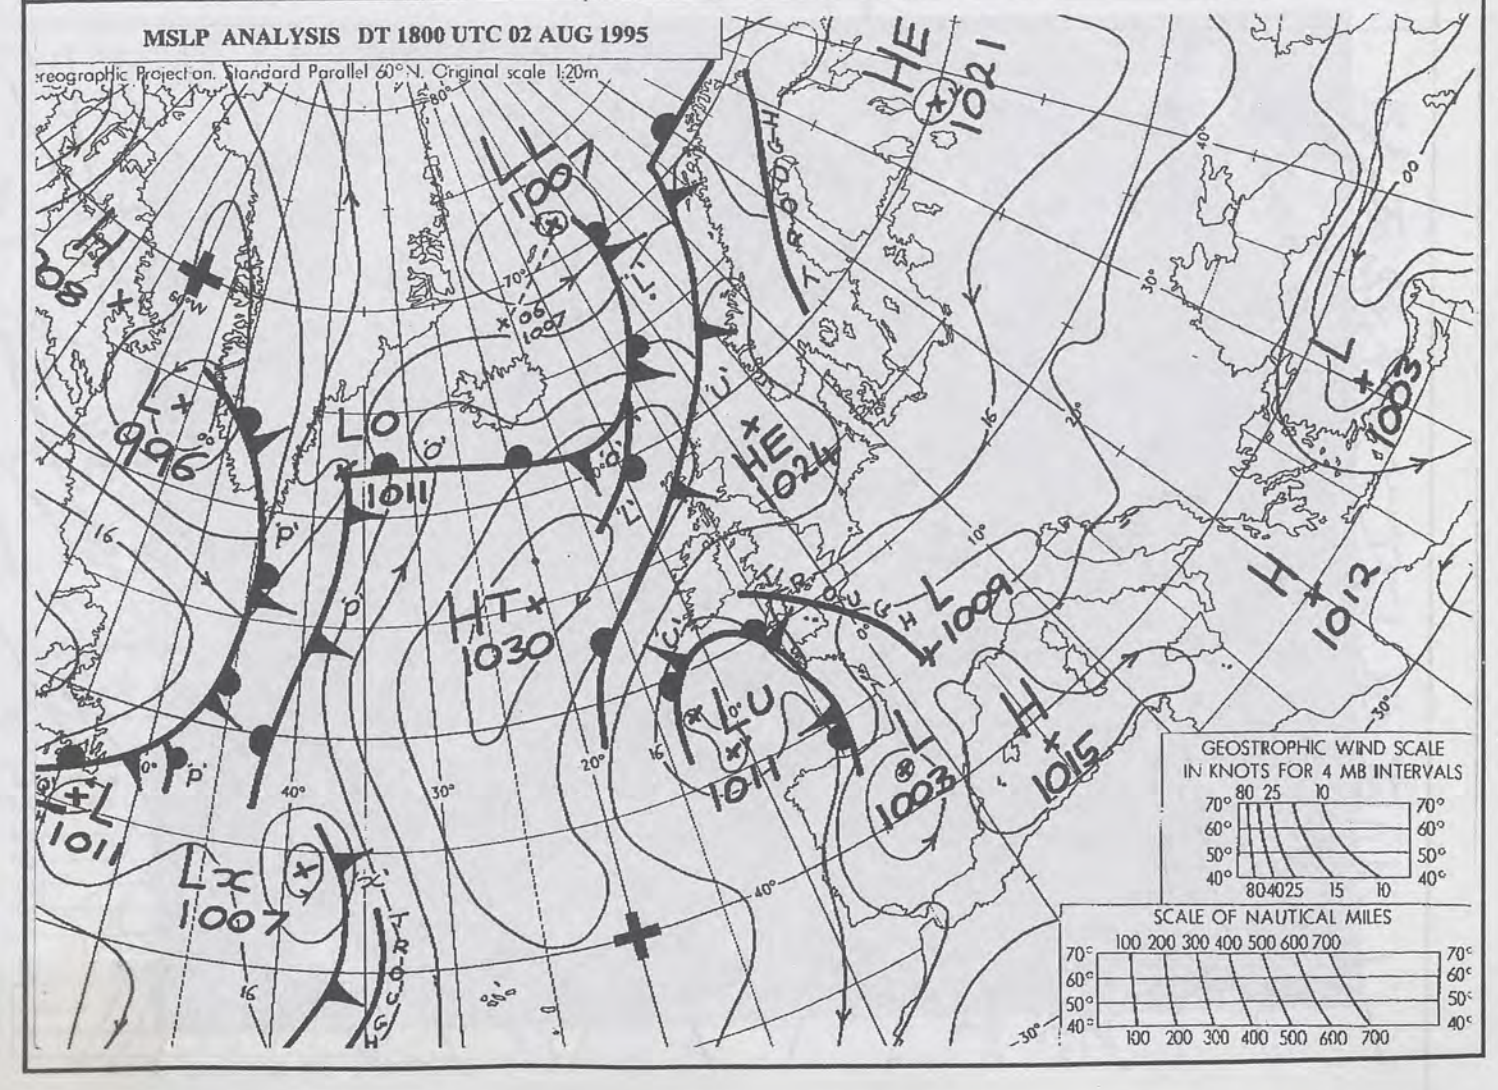 MSLP ANALYSIS DT 1800 UTC 02 AUG 1995
ereographic Projection. Standard Parallel 60°N. Original scale 1:20m
80°
HE
1021
TROUGH
40°
00
LL
1007
H
08
60°W
70°
'L'
x 06
1007
30°
L
1003
L
996
LO
1011
'O'
'O'
'U'
HE
1024
16
20°
16
'P'
'L'
10°
HT
1030
'P'
TROUGH
0°
L
1009
H
1012
'C'
LU
0°
1011
H
1015
L
1003
30°
0°
'P'
40°
30°
20°
16
L
1011
Lx
1007
'x'
TROUGH
16
40°
30°
GEOSTROPHIC WIND SCALE
IN KNOTS FOR 4 MB INTERVALS
80 25 10
70° 70°
60° 60°
50° 50°
40° 40°
80 40 25 15 10
SCALE OF NAUTICAL MILES
100 200 300 400 500 600 700
70° 70°
60° 60°
50° 50°
40° 40°
100 200 300 400 500 600 700